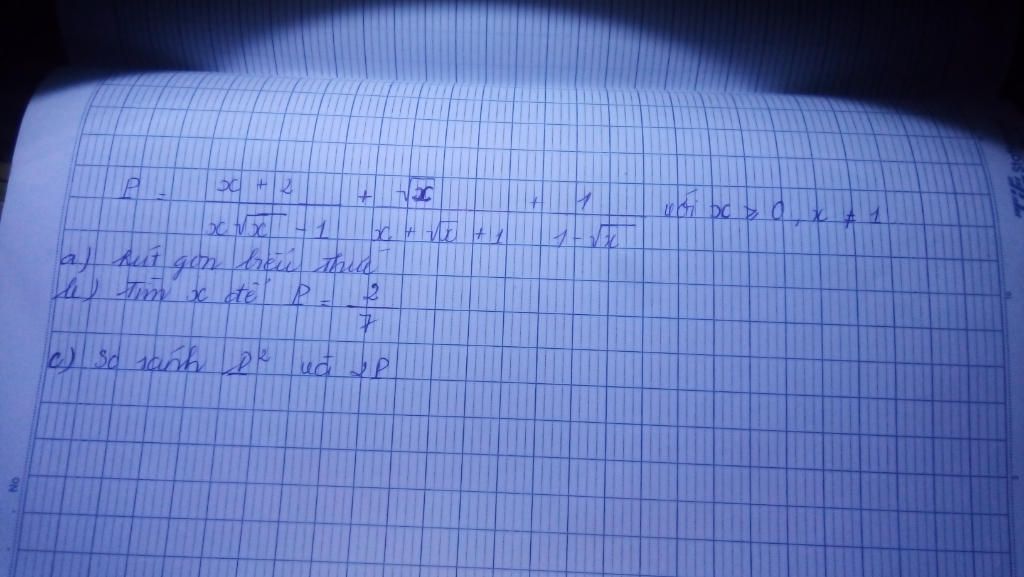 P = \frac{x + 2}{x\sqrt{x} - 1} + \frac{\sqrt{x}}{x + \sqrt{x} + 1} + \frac{1}{1 - \sqrt{x}} với x ≥ 0, x ≠ 1
a) Rút gọn biểu thức
b) Tìm x để P = \frac{2}{7}
c) So sánh P² và 2P
No